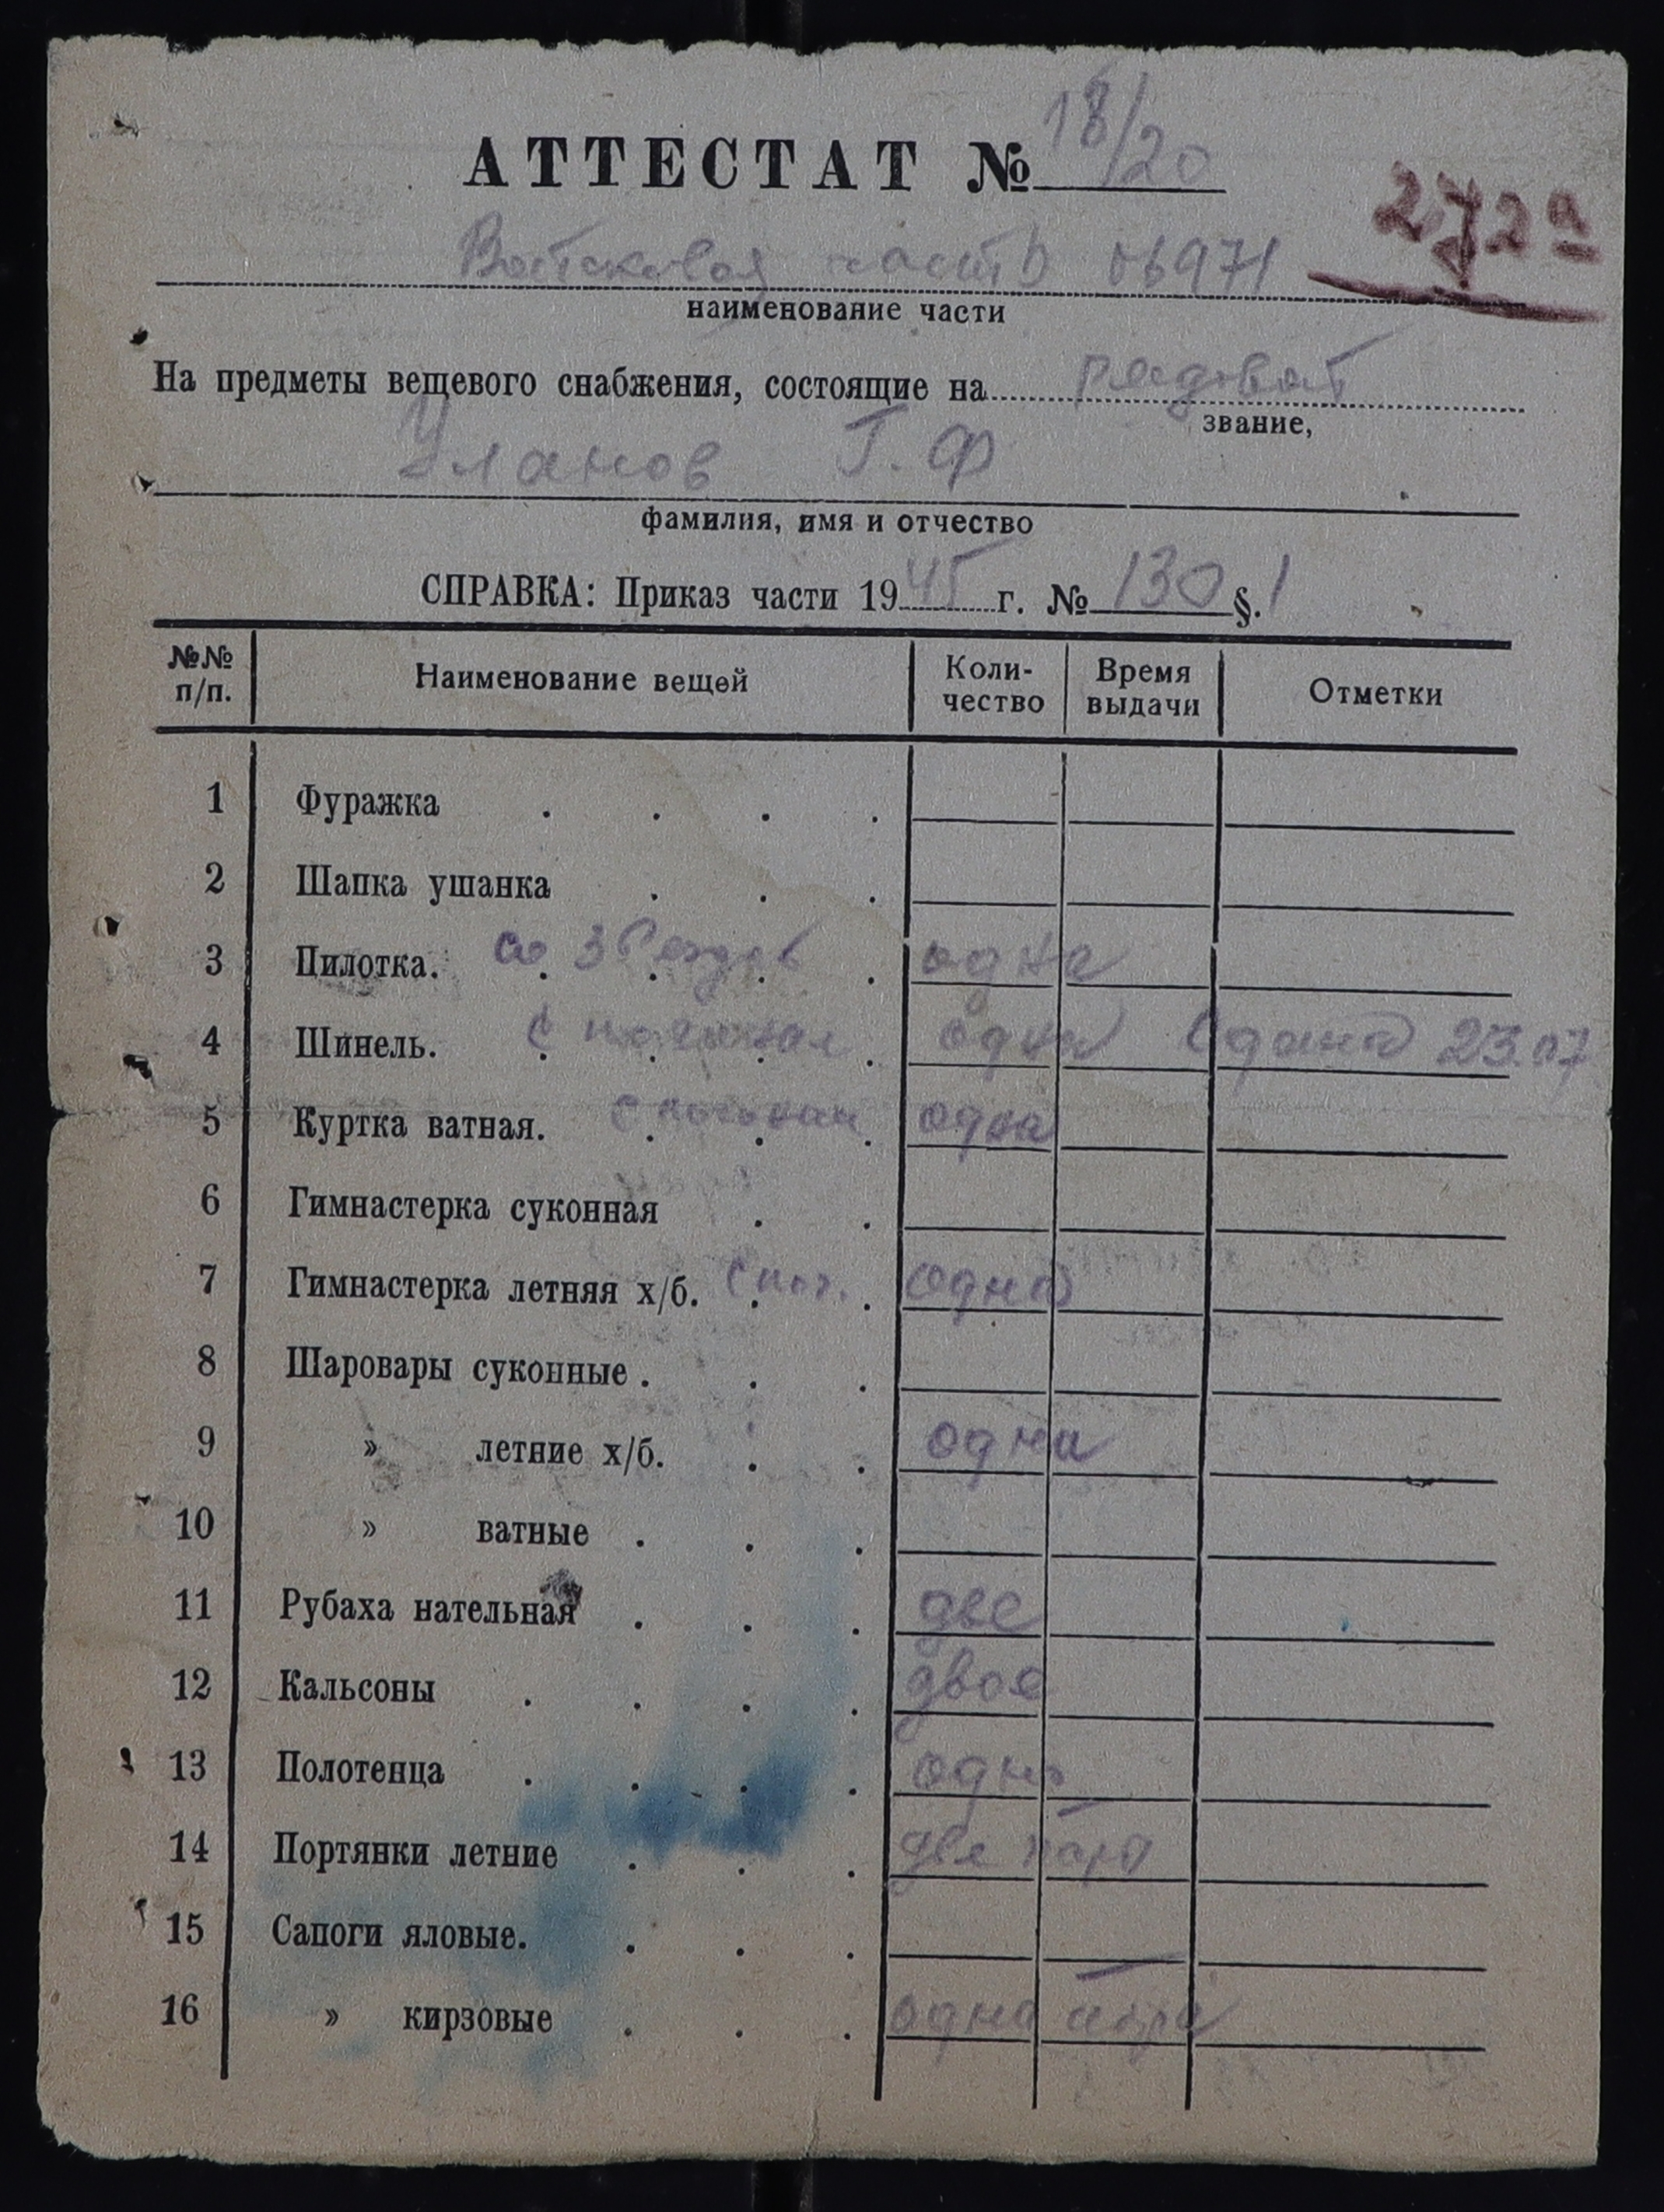 АТТЕСТАТ № 18/20
272а
Войсковая часть 06971
наименование части
На предметы вещевого снабжения, состоящие на рядовой
звание,
Уланов Г. Ф
фамилия, имя и отчество
СПРАВКА: Приказ части 1945 г. № 130 §. 1
№№ п/п. Наименование вещей Коли-чество Время выдачи Отметки
1 Фуражка . . . .
2 Шапка ушанка . . .
3 Пилотка. со . . . . одна
4 Шинель. с погонам . . . . одна Сдана 23.07
5 Куртка ватная. с погонам . . . одна
6 Гимнастерка суконная . .
7 Гимнастерка летняя х/б. с пог. . . одна
8 Шаровары суконные . . .
9 » летние х/б. . . одна
10 » ватные . . .
11 Рубаха нательная . . . две
12 Кальсоны . . . . двое
13 Полотенца . . . . одно
14 Портянки летние . . . две пары
15 Сапоги яловые. . . .
16 » кирзовые . . . одна пара